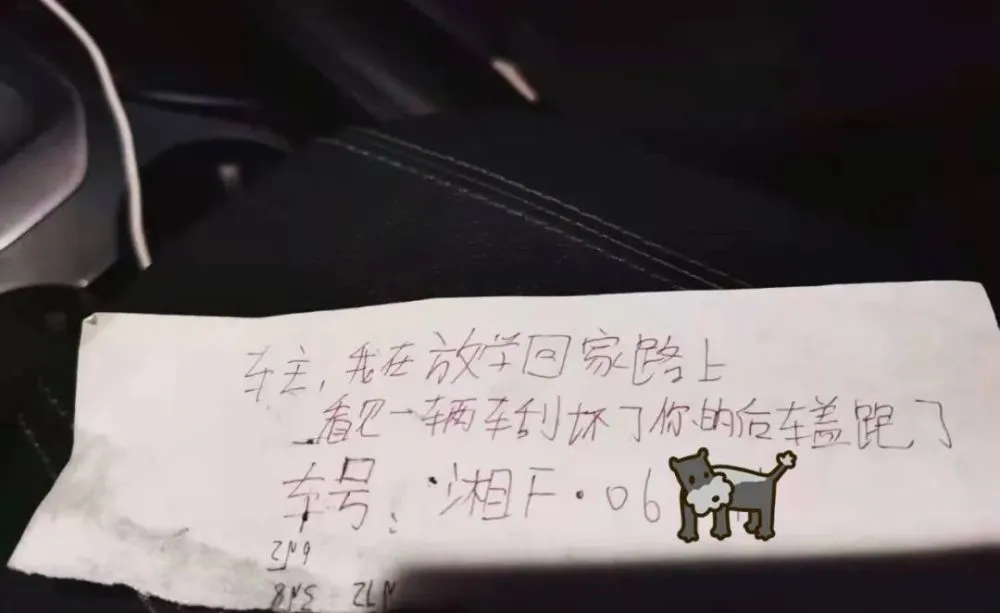 车主，我在放学回家路上
看见一辆车刮坏了你的后车盖跑了
车号：湘F·06